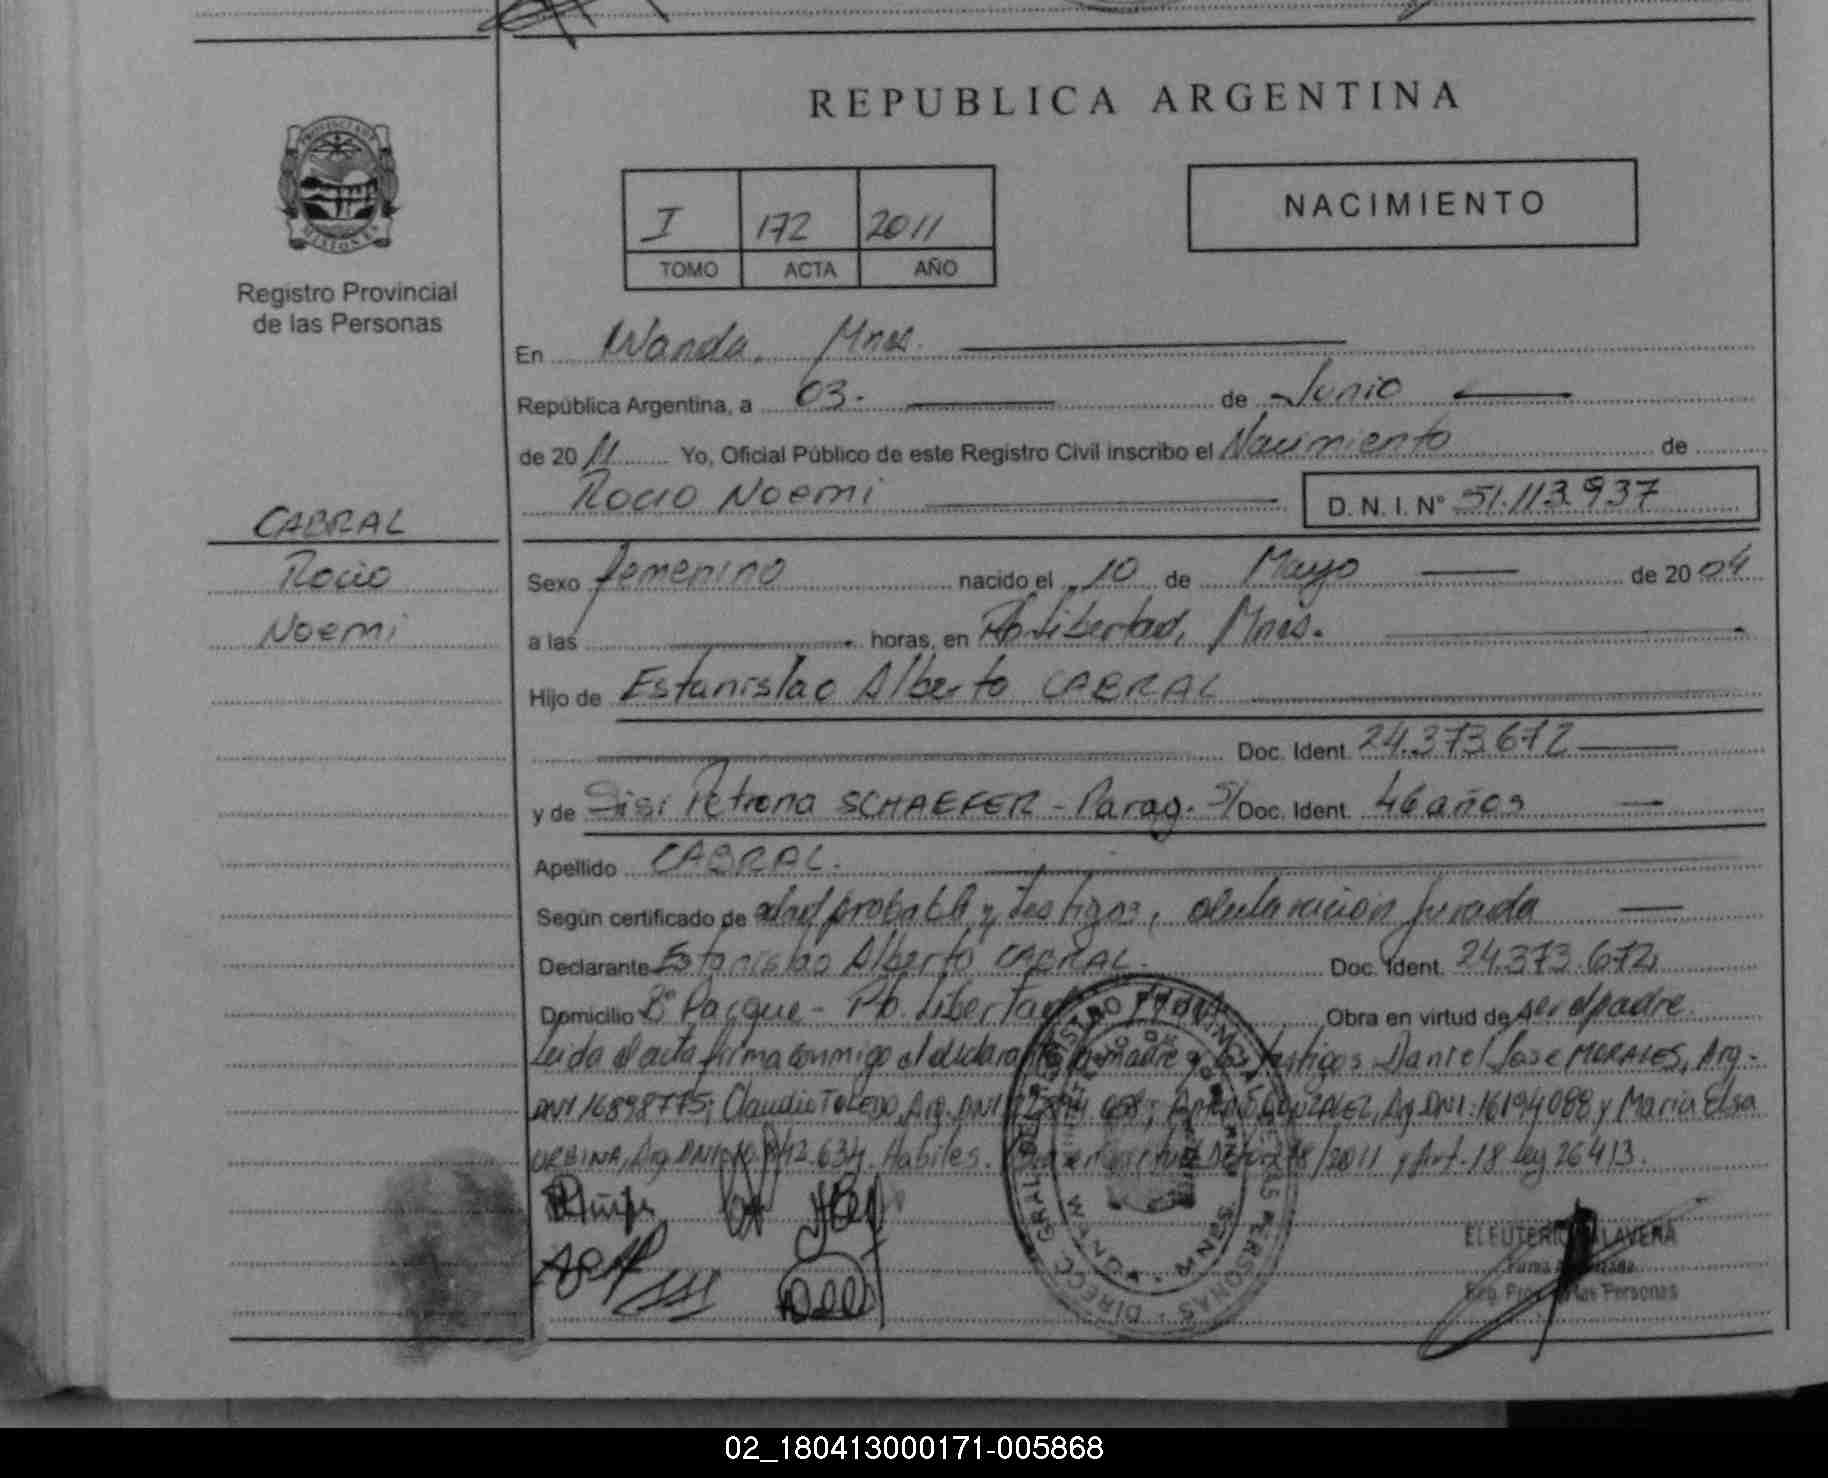 REPUBLICA ARGENTINA
PROVINCIA DE
MISIONES
Registro Provincial
de las Personas
I 172 2011
TOMO ACTA AÑO
NACIMIENTO
En Wanda, Mnes.
República Argentina, a 03. de Junio
de 2011 Yo, Oficial Público de este Registro Civil inscribo el Nacimiento de
Rocio Noemi D. N. I. Nº 51.113.937
CABRAL
Rocio
Noemi
Sexo femenino nacido el 10 de Mayo de 2004
a las horas, en Pto. Libertad, Mnes.
Hijo de Estanislao Alberto CABRAL
Doc. Ident. 24.373.672
y de Petrona SCHAEFER - Parag. S/ Doc. Ident. 46 años
Apellido CABRAL.
Según certificado de edad probable y testigos, declaración jurada
Declarante Estanislao Alberto CABRAL. Doc. Ident. 24.373.672
Domicilio Bº Parque - Pto. Libertad Obra en virtud de ser el padre.
Leida el acta firma conmigo el declarante, la madre y los testigos Daniel Jose MORALES, Arg.-
DNI 16898775; Claudio TOLEDO, Arg. DNI GONZALEZ, Arg. DNI: 16194088 y Maria Elsa
URBINA, Arg. DNI 634. Habiles. /2011 y Art. 18 Ley 26413.
DIRECC. GRAL. DEL REGISTRO PROVINCIAL DE LAS PERSONAS
WANDA MNES.
ELEUTERIO TALAVERA
Firma Autorizada
Reg. Prov. de las Personas
02_180413000171-005868